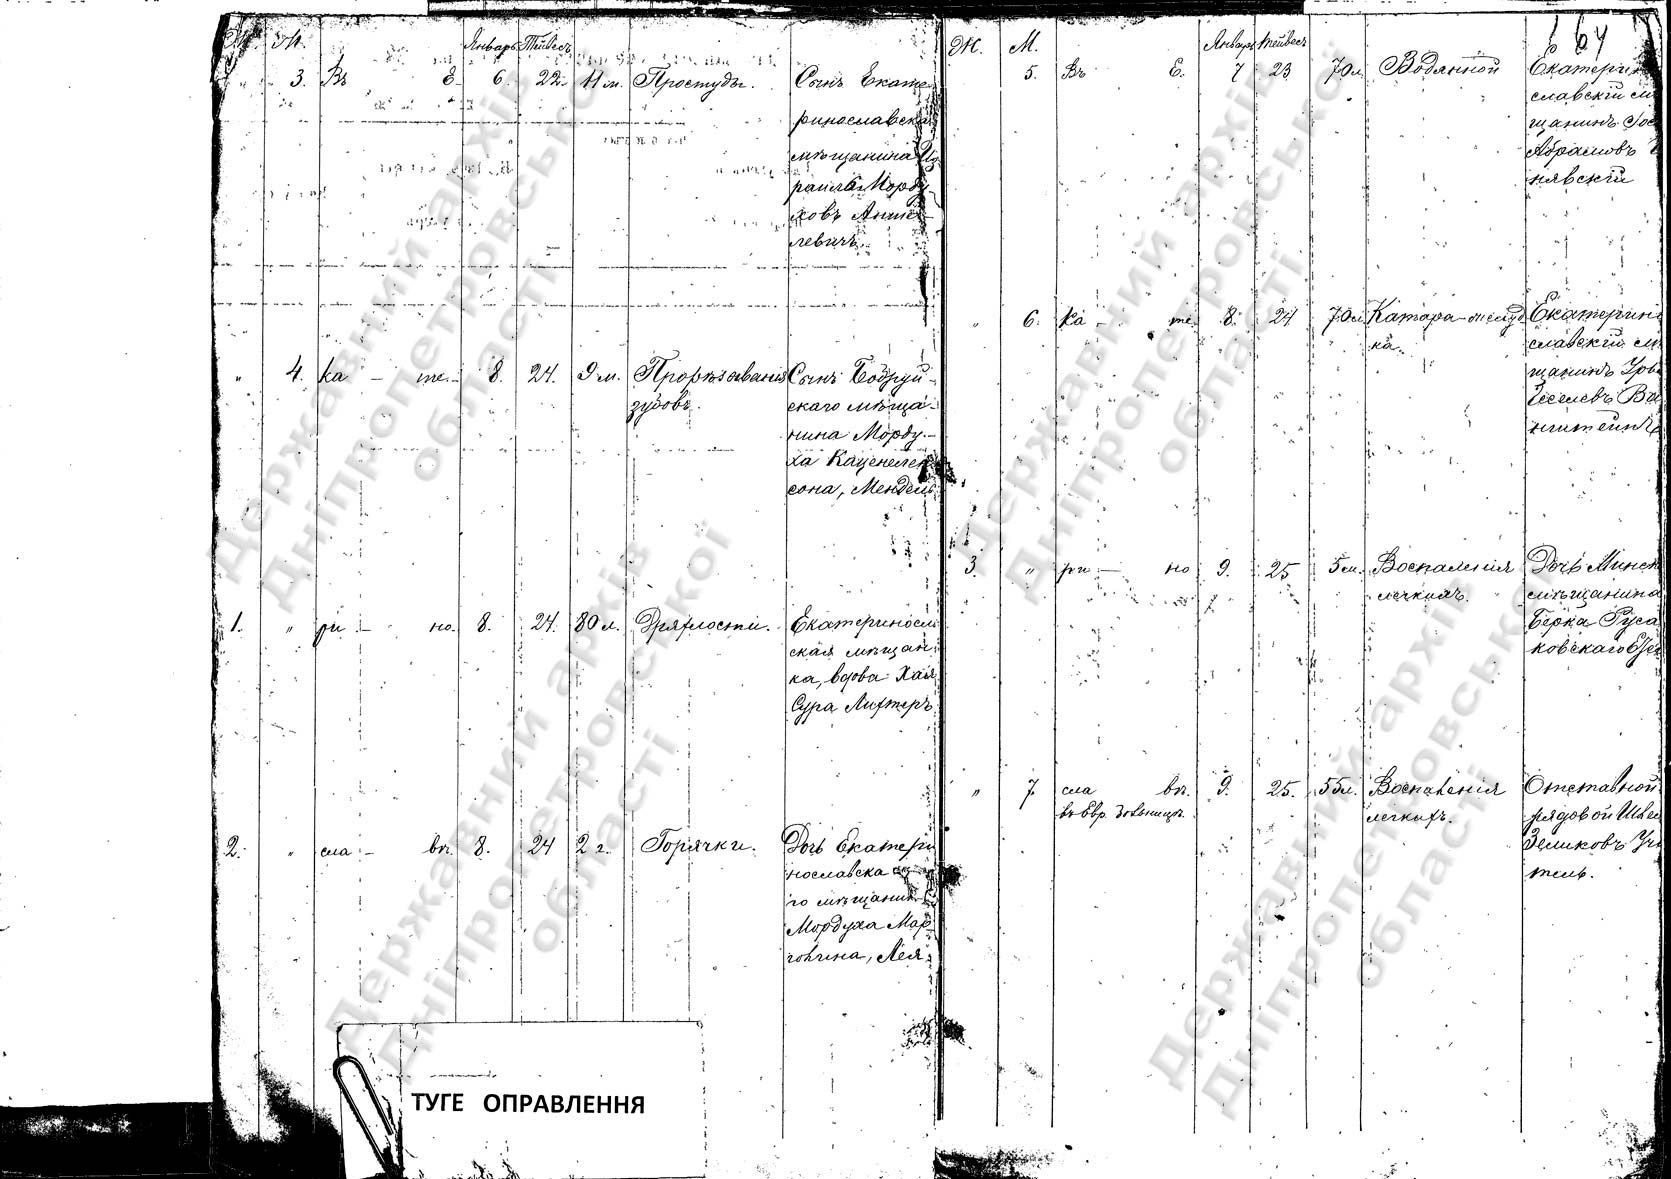 М. Январь Тейвесъ
3. Въ Е. 6. 22. 11 м. Простуды. Сынъ Екате-
ринославска
мѣщанина Из
раиля Морду
ховъ Анше-
левичъ.
" 4. ка – те. 8. 24. 9 м. Прорѣзованія Сынъ Бобруй-
зубовъ. скаго мѣща-
нина Морду-
ха Каценелен
сона, Мендель
1. " ри – но. 8. 24. 80 л. Дряхлости. Екатериносл
ская мѣщан
ка, вдова Хая
Сура Лифтеръ
2. " сла – вѣ. 8. 24 2 г. Горячки. Дочь Екатери
нославска
го мѣщанин
Мордуха Мар
голина, Лея.
Ж. М. Январь Тейвесъ 164
5. Въ Е. 7 23 70 л. Водянной Екатерин
славскій м
щанинъ Іос
Абрамовъ
нявскій
" 6. ка – те. 8. 24 70 л. Катара желуд Екатерин
ка. славскій м
щанинъ
Іеселевъ
нштейнъ
3. " ри – но 9. 25 5 м. Воспаленія Дочь Минск
легкихъ. мѣщанина
Берка Руса
ковскаго
" 7 сла вѣ. 9. 25. 55 л. Воспаленія Отставной
въ Евр. больницѣ. легкихъ. рядовой
Зеликовъ Учи
тель.
ТУГЕ ОПРАВЛЕННЯ
Державний архів
Дніпропетровської
області